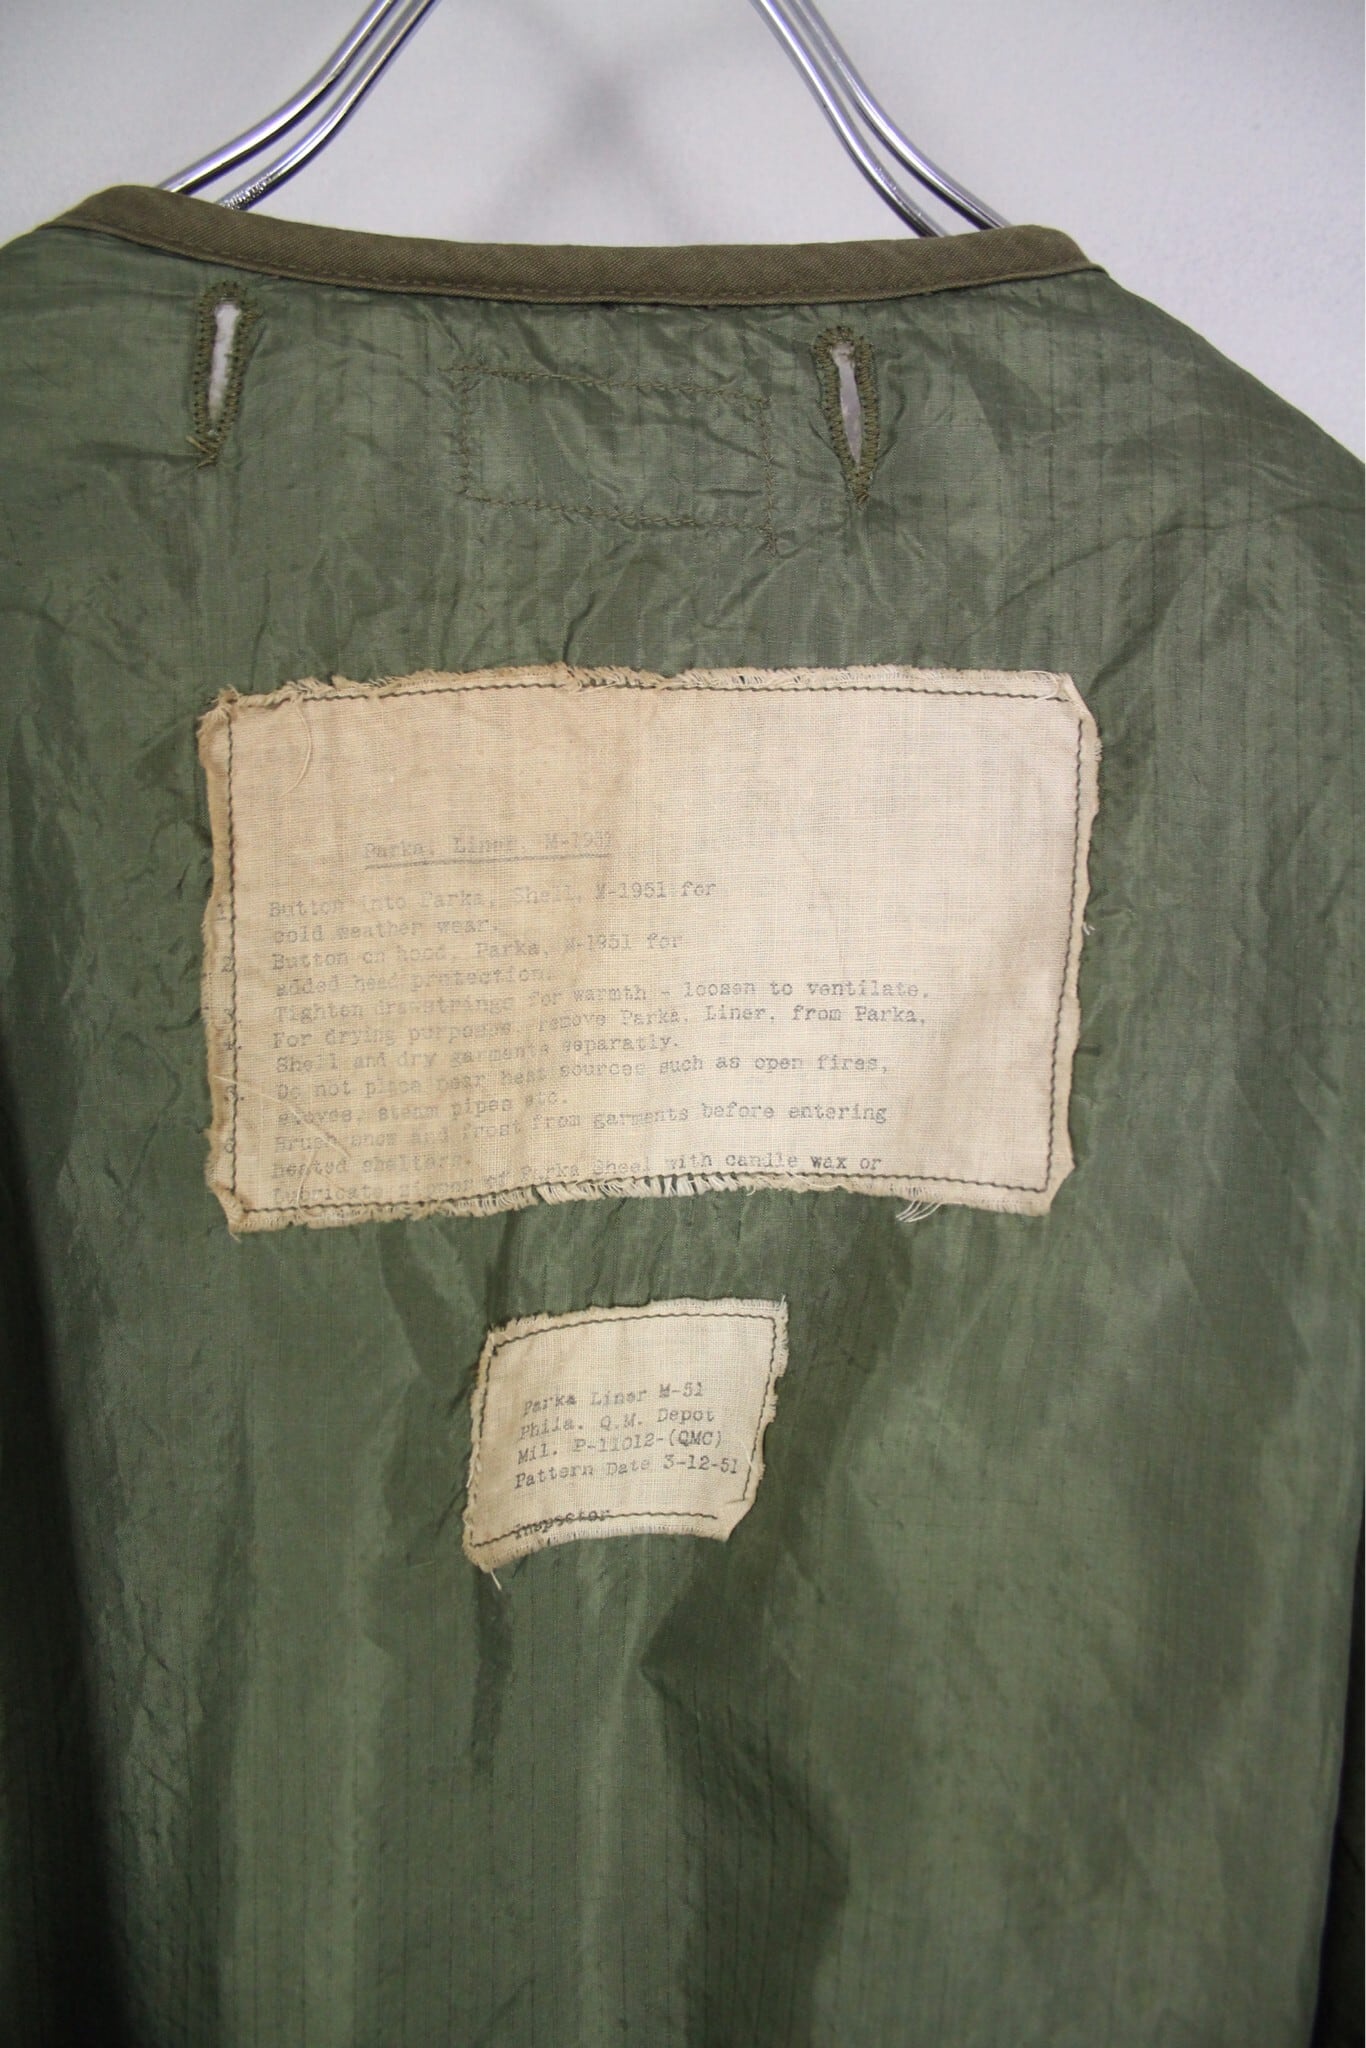 Parka, Liner, M-1951
1. Button into Parka, Shell, M-1951 for
cold weather wear.
2. Button on hood, Parka, M-1951 for
added head protection.
3. Tighten drawstrings for warmth - loosen to ventilate.
4. For drying purposes, remove Parka, Liner, from Parka,
Shell and dry garments separatly.
5. Do not place near heat sources such as open fires,
stoves, steam pipes etc.
6. Brush snow and frost from garments before entering
heated shelters.
Lubricate zipper of Parka Sheel with candle wax or
Parka Liner M-51
Phila. Q.M. Depot
Mil. P-11012-(QMC)
Pattern Date 3-12-51
Inspector